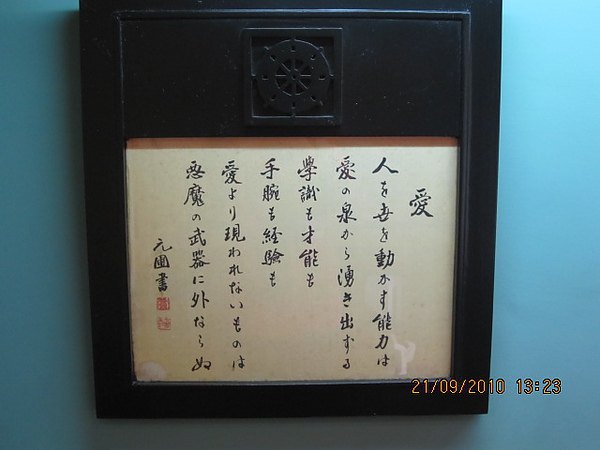 愛
人を世を動かす能力は
愛の泉から湧き出ずる
學識も才能も
手腕も経験も
愛より現われないものは
悪魔の武器に外ならぬ
元圃書
21/09/2010 13:23